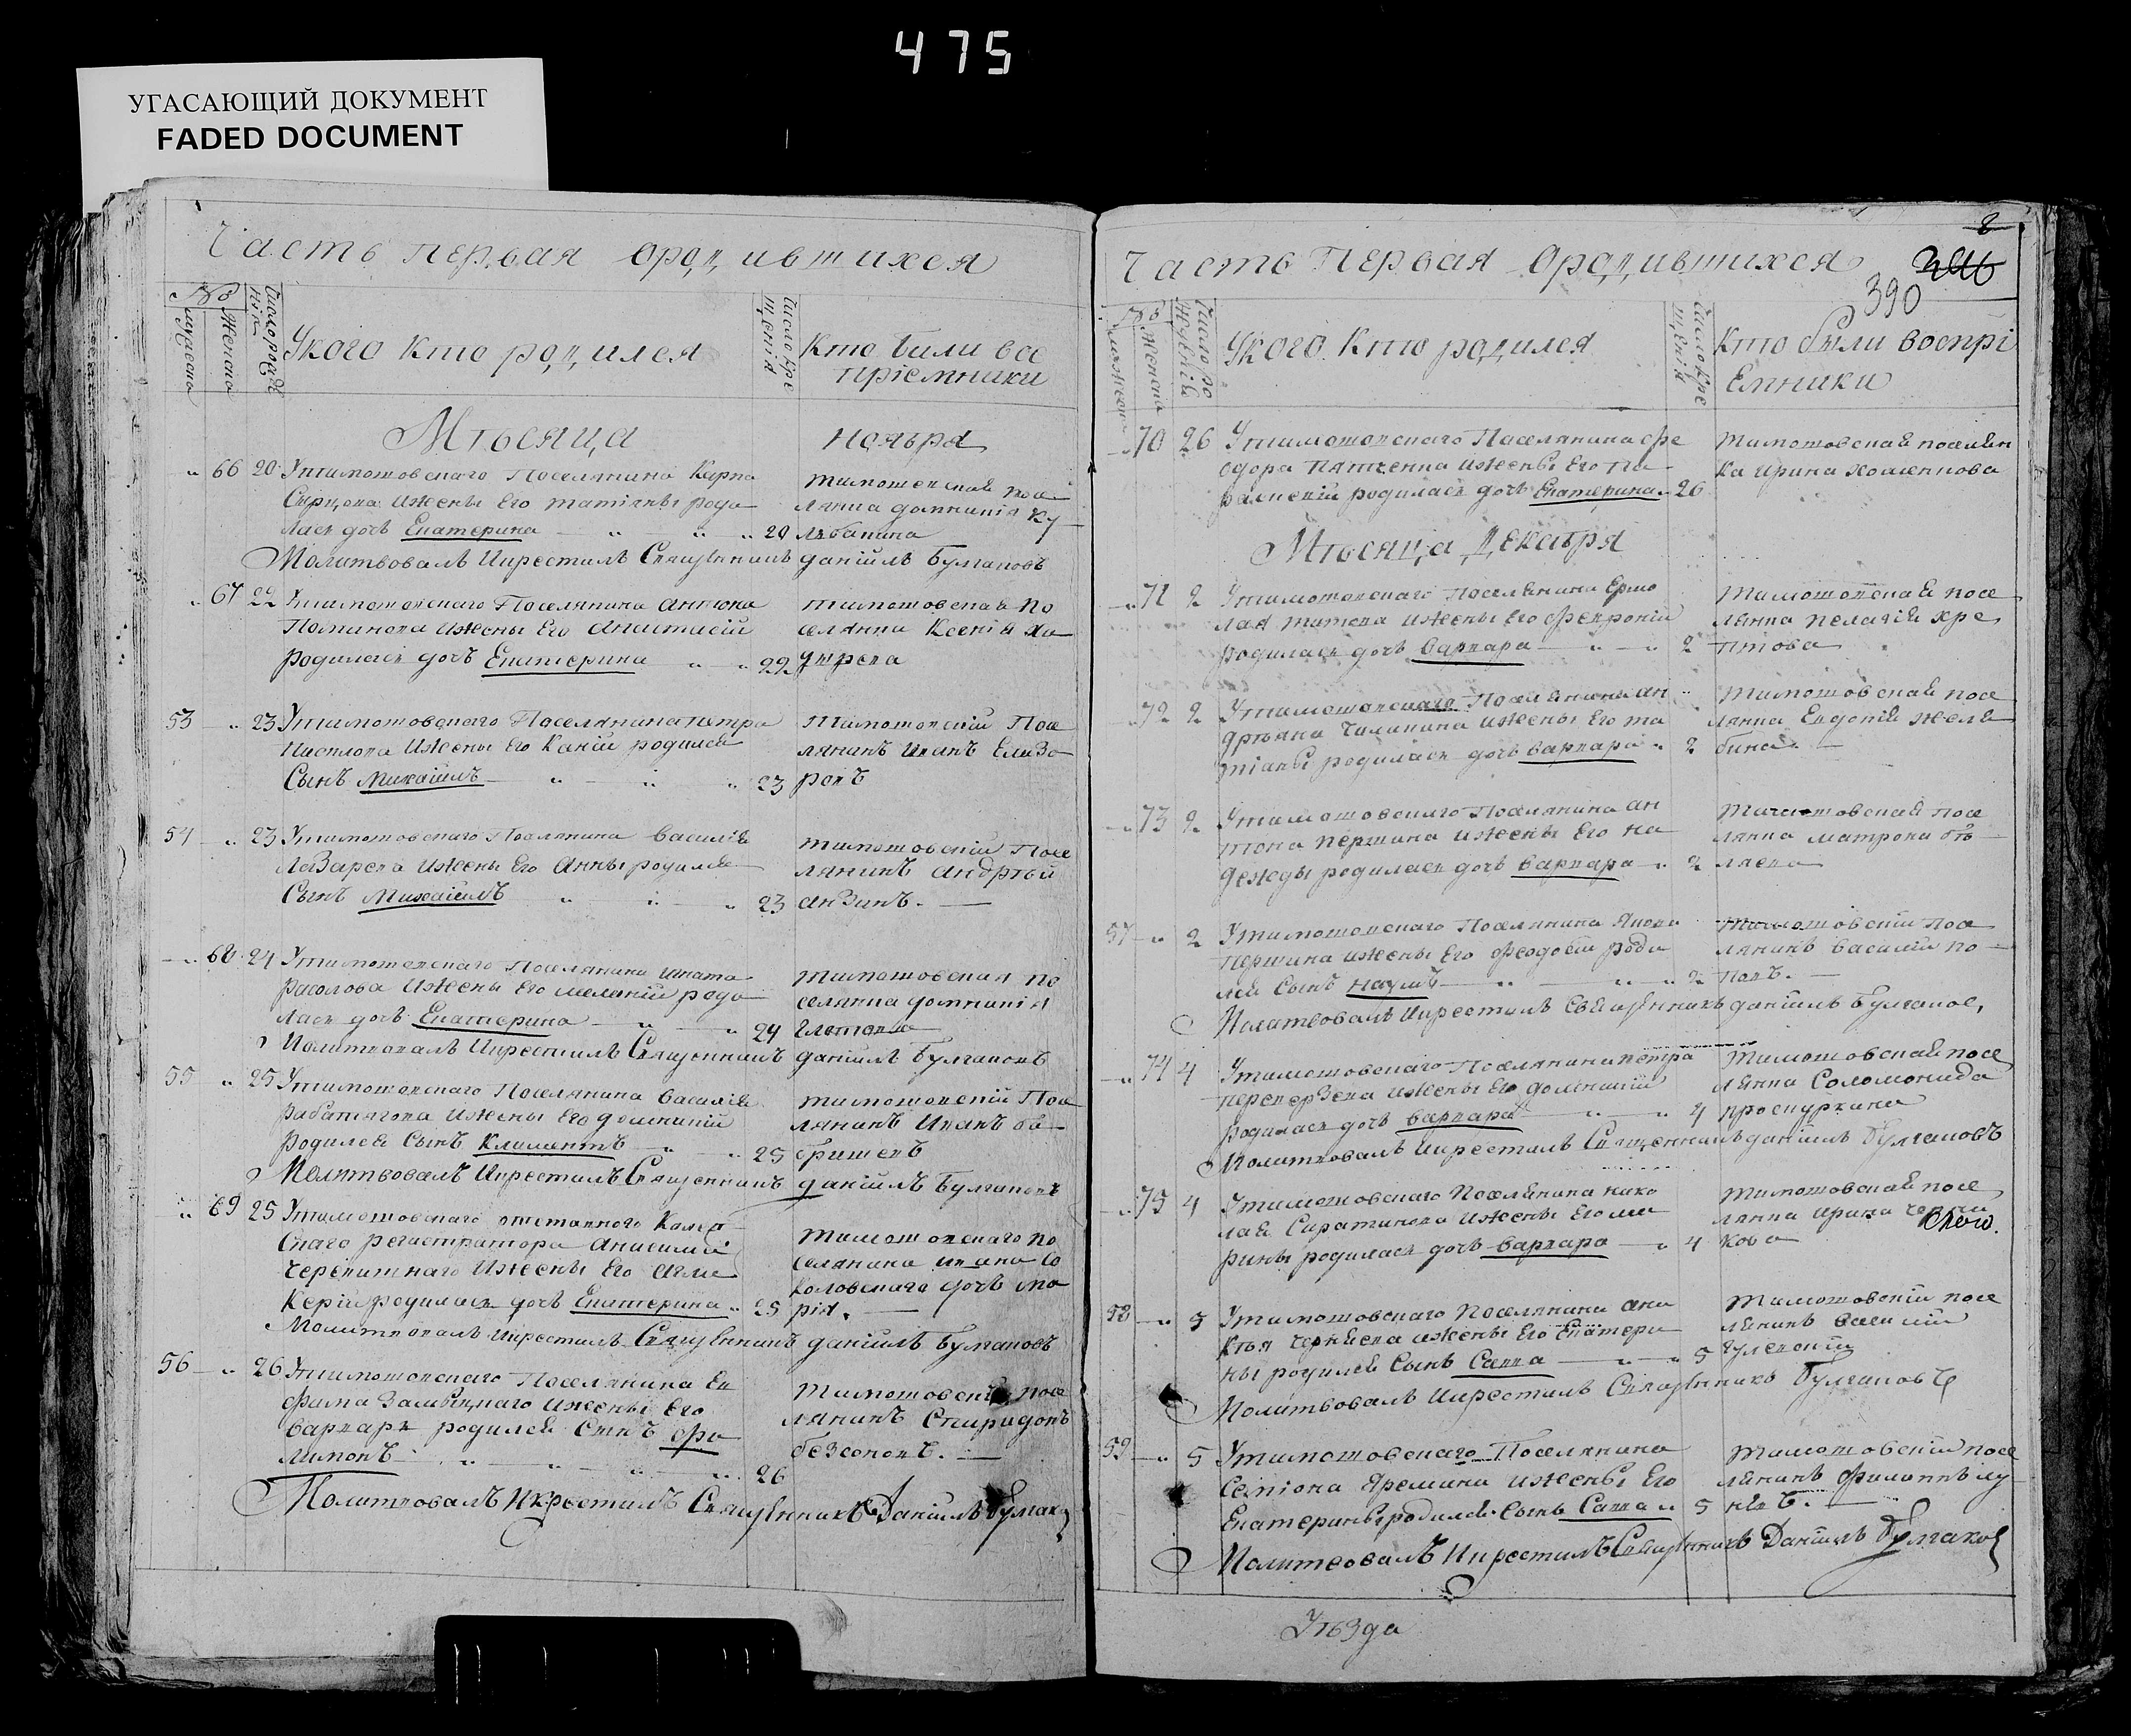 475
УГАСАЮЩИЙ ДОКУМЕНТ
FADED DOCUMENT
Часть первая ородившихся
№
Мужеска
Женска
Число рожденія
Укого кто родился
Число крещенія
Кто были вос
пріемники
Мѣсяца Ноября
66 20 Утимошовскаго Поселянина Карпа
ижены Его татіаны роди
лась дочь Екатерина 20
тимошовская посе
лянка домникія Ку
лябакина
Молитвовалъ Икрестилъ Священникъ даніилъ Булгаковъ
67 22 Утимошовскаго Поселянина Антона
Логвинова Ижены Его Анастасіи
родилась дочь Екатерина 22
тимошовская По
селянка Ксенія
53 23 Утимошовскаго Поселянина петра
Ижены Его родился
Сынъ Михаилъ 23
Тимошовскій Посе
лянинъ Иванъ Елиза
ровъ
54 23 Утимошовскаго Поселянина василія
Лазарева Ижены Его Анны родился
Сынъ Михаилъ 23
тимошовскій Посе
лянинъ Андрѣй
анзинъ.
68 24 Утимошовскаго Поселянина игната
расолова Ижены Его меланіи роди
лась дочь Екатерина 24
тимошовская по
селянка домникія
Молитвовалъ Икрестилъ Священникъ даніилъ Булгаковъ
55 25 Утимошовскаго Поселянина василія
работягова Ижены Его домникіи
родился Сынъ Климентъ 25
тимошовскій Посе
лянинъ Иванъ ба
бришевъ
Молитвовалъ Икрестилъ Священникъ даніилъ Булгаковъ
69 25 Утимошовскаго отставнаго Колеж
скаго регистратора
Ижены Его гли
керіи родилась дочь Екатерина 25
Тимошовскаго по
селянина ивана Со
коловскаго дочь ма
рія.
Молитвовалъ икрестилъ Священникъ даніилъ Булгаковъ
56 26 Утимошовскаго Поселянина Еф
Ижены Его
варвары родился Сынъ фи
лимонъ 26
Тимошовскій посе
лянинъ Спиридонъ
безсоновъ.
Молитвовалъ Икрестилъ Священникъ Даніилъ Булгаков
Часть Первая Ородившихся
8
390
№
Женска
Укого Кто родился
Кто были воспрі
Емники
70 26 Утимошовскаго Поселянина фе
одора пятченка ижены Его па
раскевіи родилась дочь Екатерина 26
тимошовская поселян
ка ирина хоменкова
Мѣсяца Декабря
71 2 Утимошовскаго поселянина Ермо
лая титова ижены Его февроніи
родилась дочь варвара 2
Тимошовская посе
лянка пелагія хре
птова
72 2 Утимошовскаго Поселянина ан
дрѣяна ижены Его та
тіаны родилась дочь варвара 2
Тимошовская посе
лянка Евдокія желя
бина.
73 2 Утимошовскаго Поселянина ан
тона першина ижены Его на
дежды родилась дочь варвара 2
Тимошовская посе
лянка матрона бѣ
ляева
57 2 Утимошовскаго Поселянина Якова
першина ижены Его феодосіи роди
лся Сынъ наумъ 2
Тимошовскій посе
лянинъ василій по
повъ.
Молитвовалъ икрестилъ Священникъ даніилъ Булгаков,
74 4 Утимошовскаго Поселянина петра
переверзева ижены Его домникіи
родилась дочь варвара 4
Тимошовская посе
лянка Соломонида
проскуркина
Молитвовалъ икрестилъ Священникъ даніилъ Булгаковъ
75 4 Утимошовскаго поселянина нико
лая ижены Его ма
рины родилась дочь варвара 4
Тимошовская посе
лянка ирина
кова
58 5 Утимошовскаго поселянина ани
кѣя ижены Его Екатери
ны родился Сынъ Савва 5
Тимошовскій посе
лянинъ василій
Молитвовалъ икрестилъ Священникъ Булгаковъ
59 5 Утимошовскаго Поселянина
Семіона Яремина ижены Его
Екатерины родился Сынъ Савва 5
Тимошовскій посе
лянинъ филиппъ лу
Молитвовалъ Икрестилъ Священникъ Даніилъ Булгаков
Уѣзда